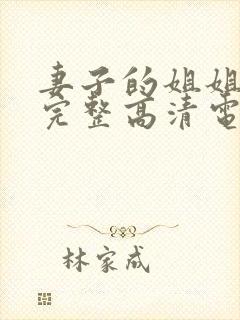 妻子的姐姐
完整高清電
林家成